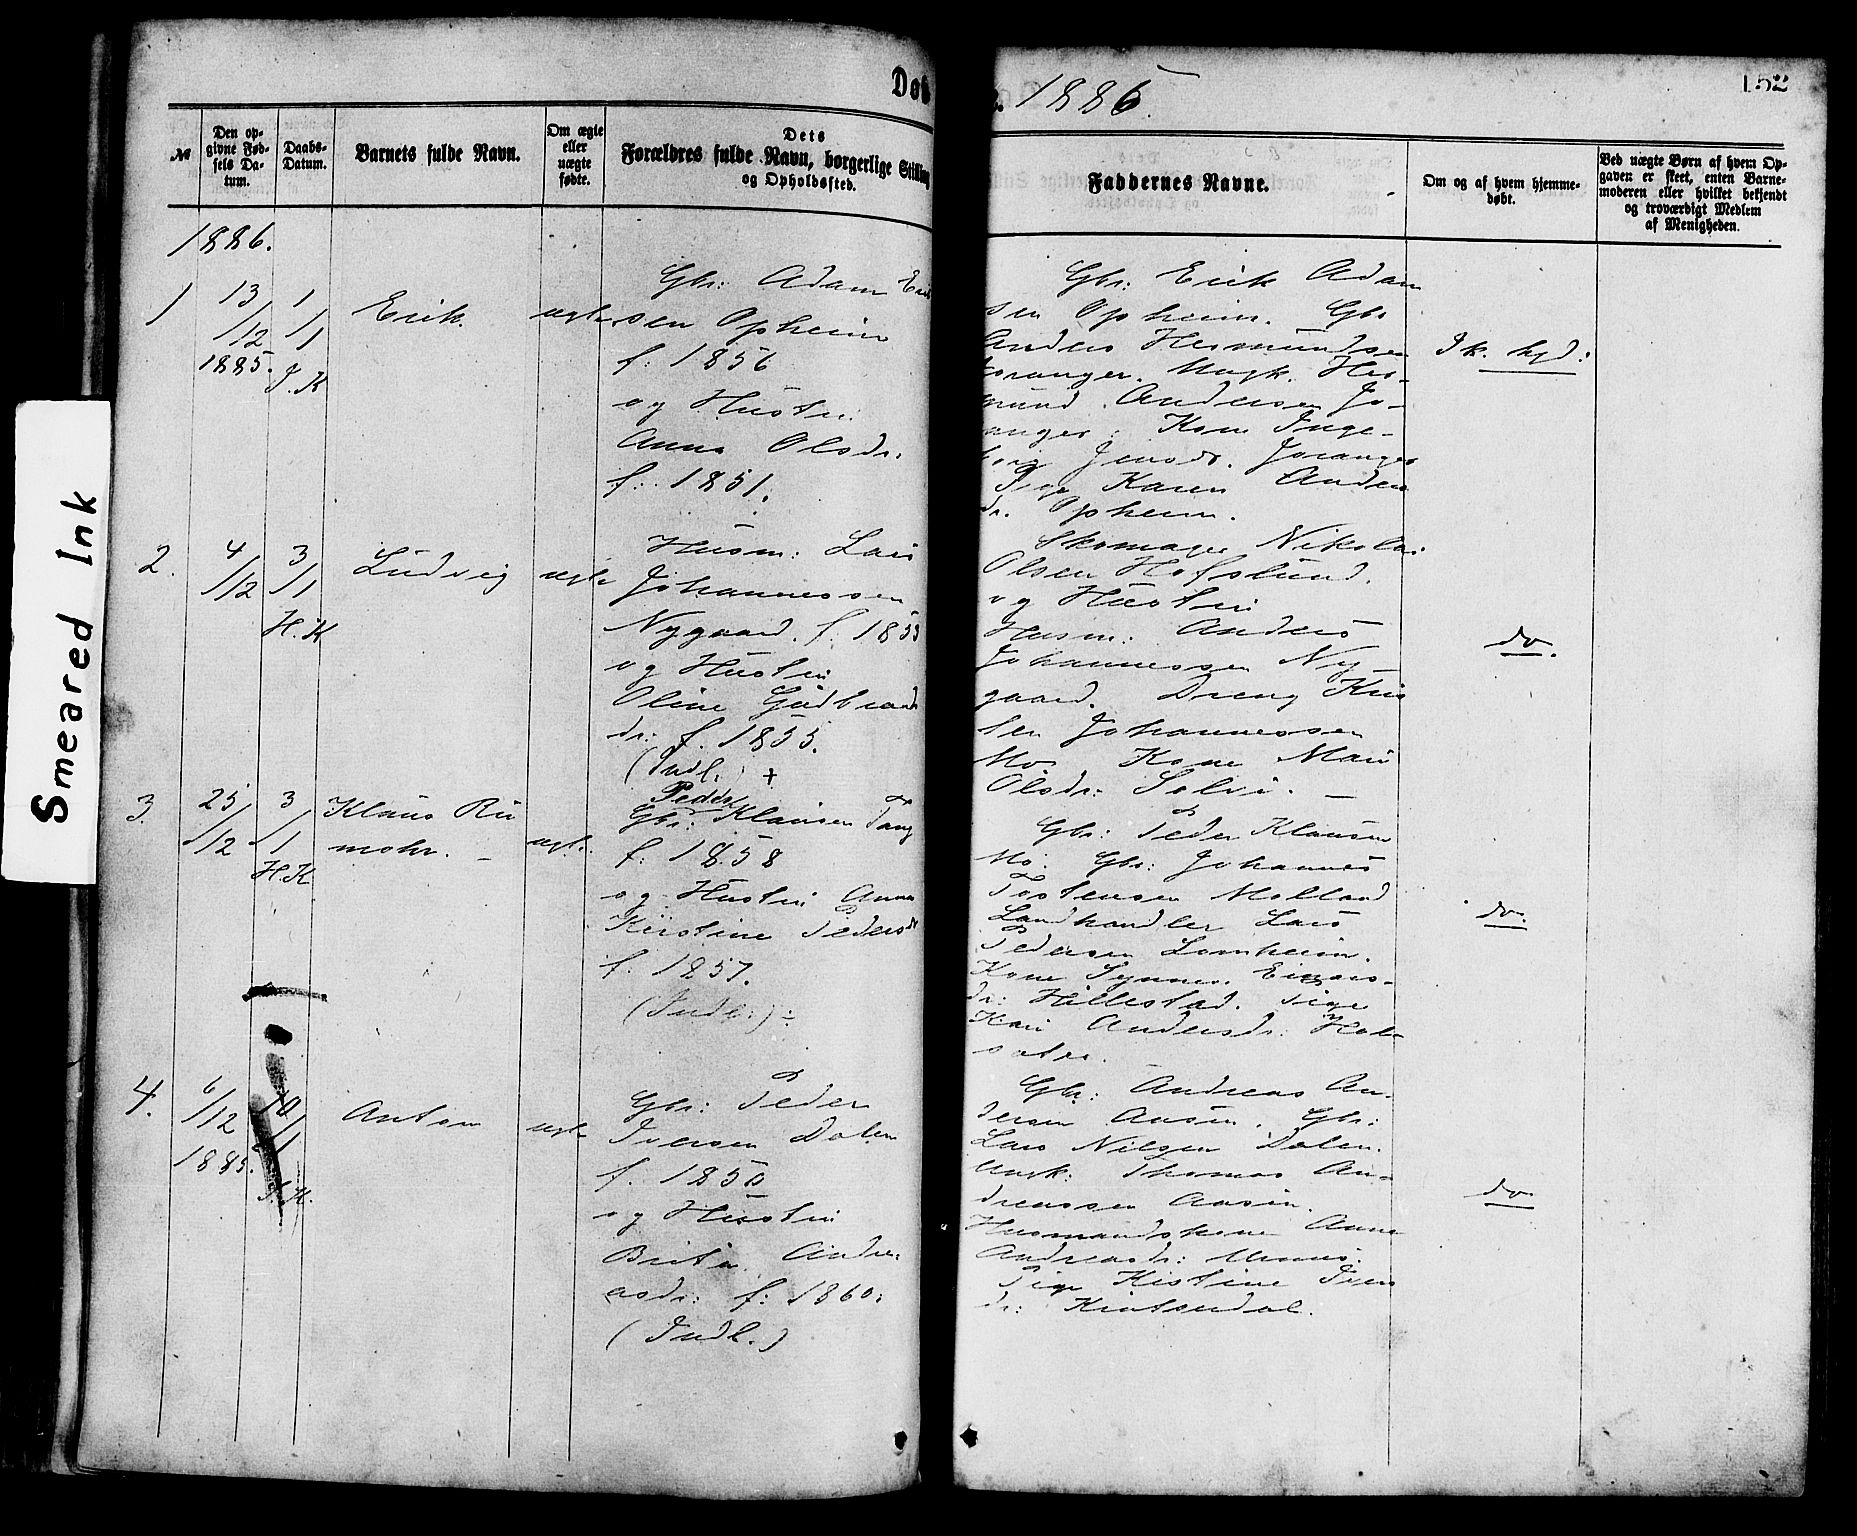 Smeared Ink
Død
1886.
152
№
Den op-
givne Fød-
sels Da-
tum.
Daabs-
Datum.
Barnets fulde Navn.
Om ægte
eller
uægte
fødte.
Dets
Forældres fulde Navn, borgerlige Stilling
og Opholdssted.
Faddernes Navne.
Om og af hvem hjemme-
døbt.
Ved uægte Børn af hvem Op-
gaven er skeet, enten Barne-
moderen eller hvilket bekjendt
og troværdigt Medlem
af Menigheden.
1886.
1
13
/12
1885.
1
/1
J.K
Erik.
ægte
Gbr: Adam Erik
sen Opheim
f: 1856
og Hustru
Anna Olsdr.
f: 1851.
Gbr: Erik Adam
sen Opheim. Gbr
Anders Hermundsen
Joranger. Ungk. Her-
mund Andersen Jo-
anger. Kone Inge-
borg Jensdr. Joranger
Pige Karen Anders
dr. Opheim.
Ik. hjd:
2.
4
/12
3
/1
H.K
Ludvig
ægte
Husm: Lars
Johannessen
Nygaard. f. 1853
og Hustru
Oline Gudbrands
dr: f. 1855.
(Indl.) +
Skomager Nikolai
Olsen Hofslund.
og Hustru
Husm: Anders
Johannessen Ny-
gaard. Dreng Kris
ten Johannessen
Mo Kone Mari
Olsdr: Solvi. —
do.
3.
25
/12
3
/1
H.K
Klaus Ru
mohr. —
ægte
Peder
Gbr: Klausen Tang
f. 1858
og Hustru Anna
Kirstine Pedersdr
f. 1857.
(Indl:) ÷
Gbr: Peder Klausen
Mo. Gbr: Johannes
Tostensen Molland
Landhandler Lars
Pedersen Lomheim.
Kone Synneve Einars-
dr: Hillestad. Pige
Kari Andersdr: Hol-
sater.
do.
4.
6
/12
1885.
10
/1
J.K.
Anton
ægte
Gbr: Peder
Iversen Dalen
f. 1850
og Hustru
Brita Andre-
asdr: f: 1860.
(Indl.)
Gbr: Andreas An-
dersen Aasen. Gbr:
Lars Nilsen Dalen.
Ungk: Thomas An-
dreassen Aasen.
Husmandskone Anna
Andreasdr: Urnes.
Pige Kistine Ivers
dr: Kintsedal.
do